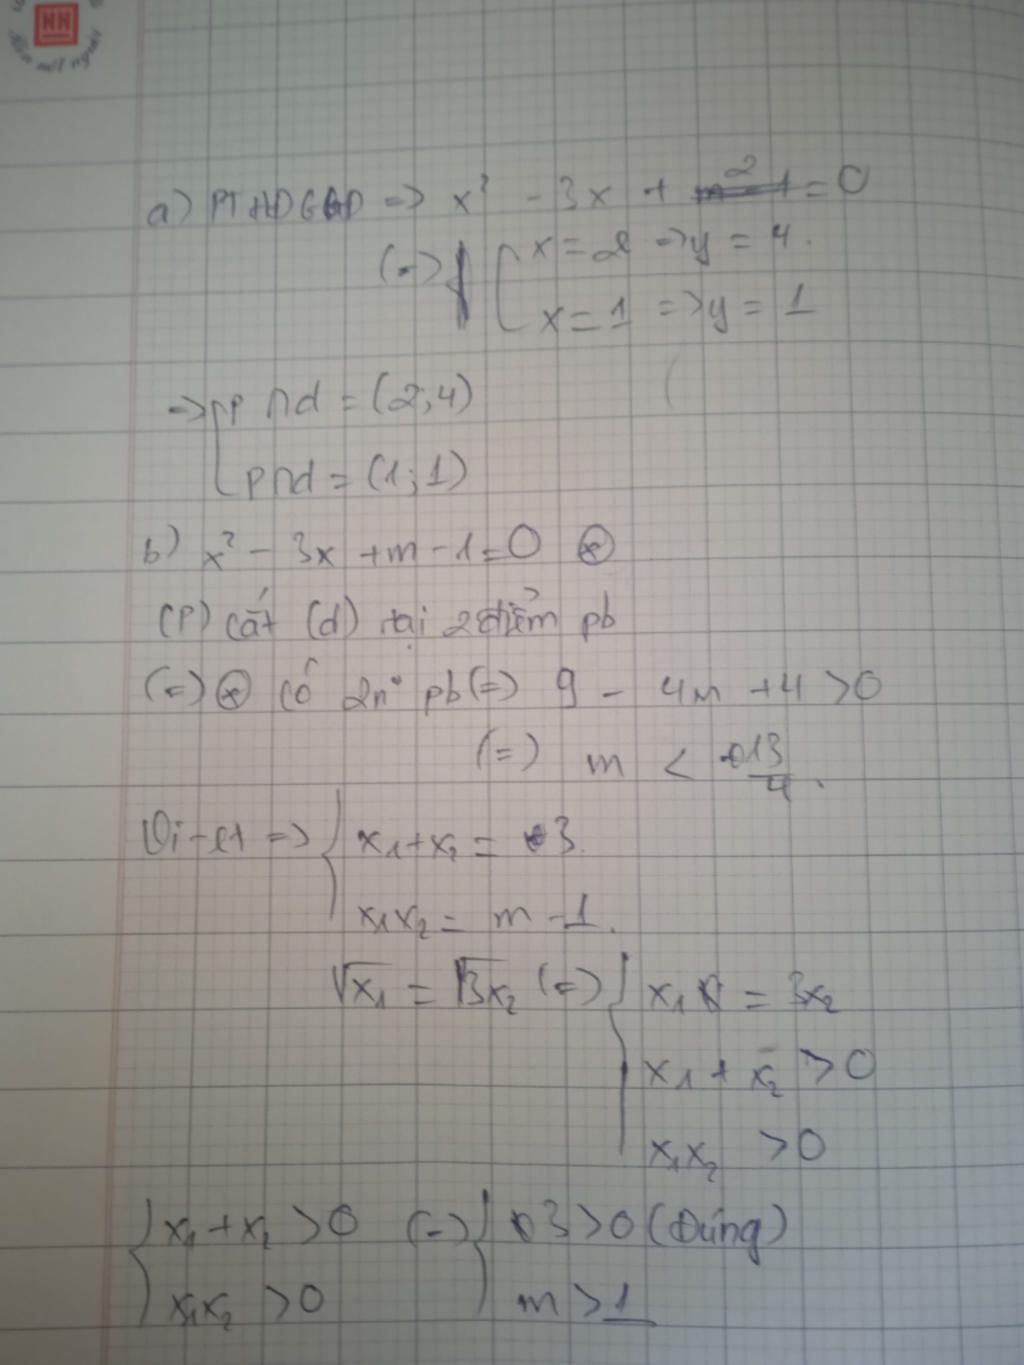 NN
a) PT HĐGĐ => x² - 3x + 2 = 0
(=) [ x = 2 => y = 4.
x = 1 => y = 1
=> [ P ∩ d = (2; 4)
P ∩ d = (1; 1)
b) x² - 3x + m - 1 = 0 (*)
(P) cắt (d) tại 2 điểm pb
(=) (*) có 2n° pb (=) 9 - 4m + 4 > 0
(=) m < 13/4.
Vi-et => { x₁ + x₂ = 3.
x₁x₂ = m - 1.
√x₁ = √3x₂ (=) { x₁ = 3x₂
x₁ + x₂ > 0
x₁x₂ > 0
{ x₁ + x₂ > 0 (=) { 3 > 0 (Đúng)
x₁x₂ > 0 m > 1